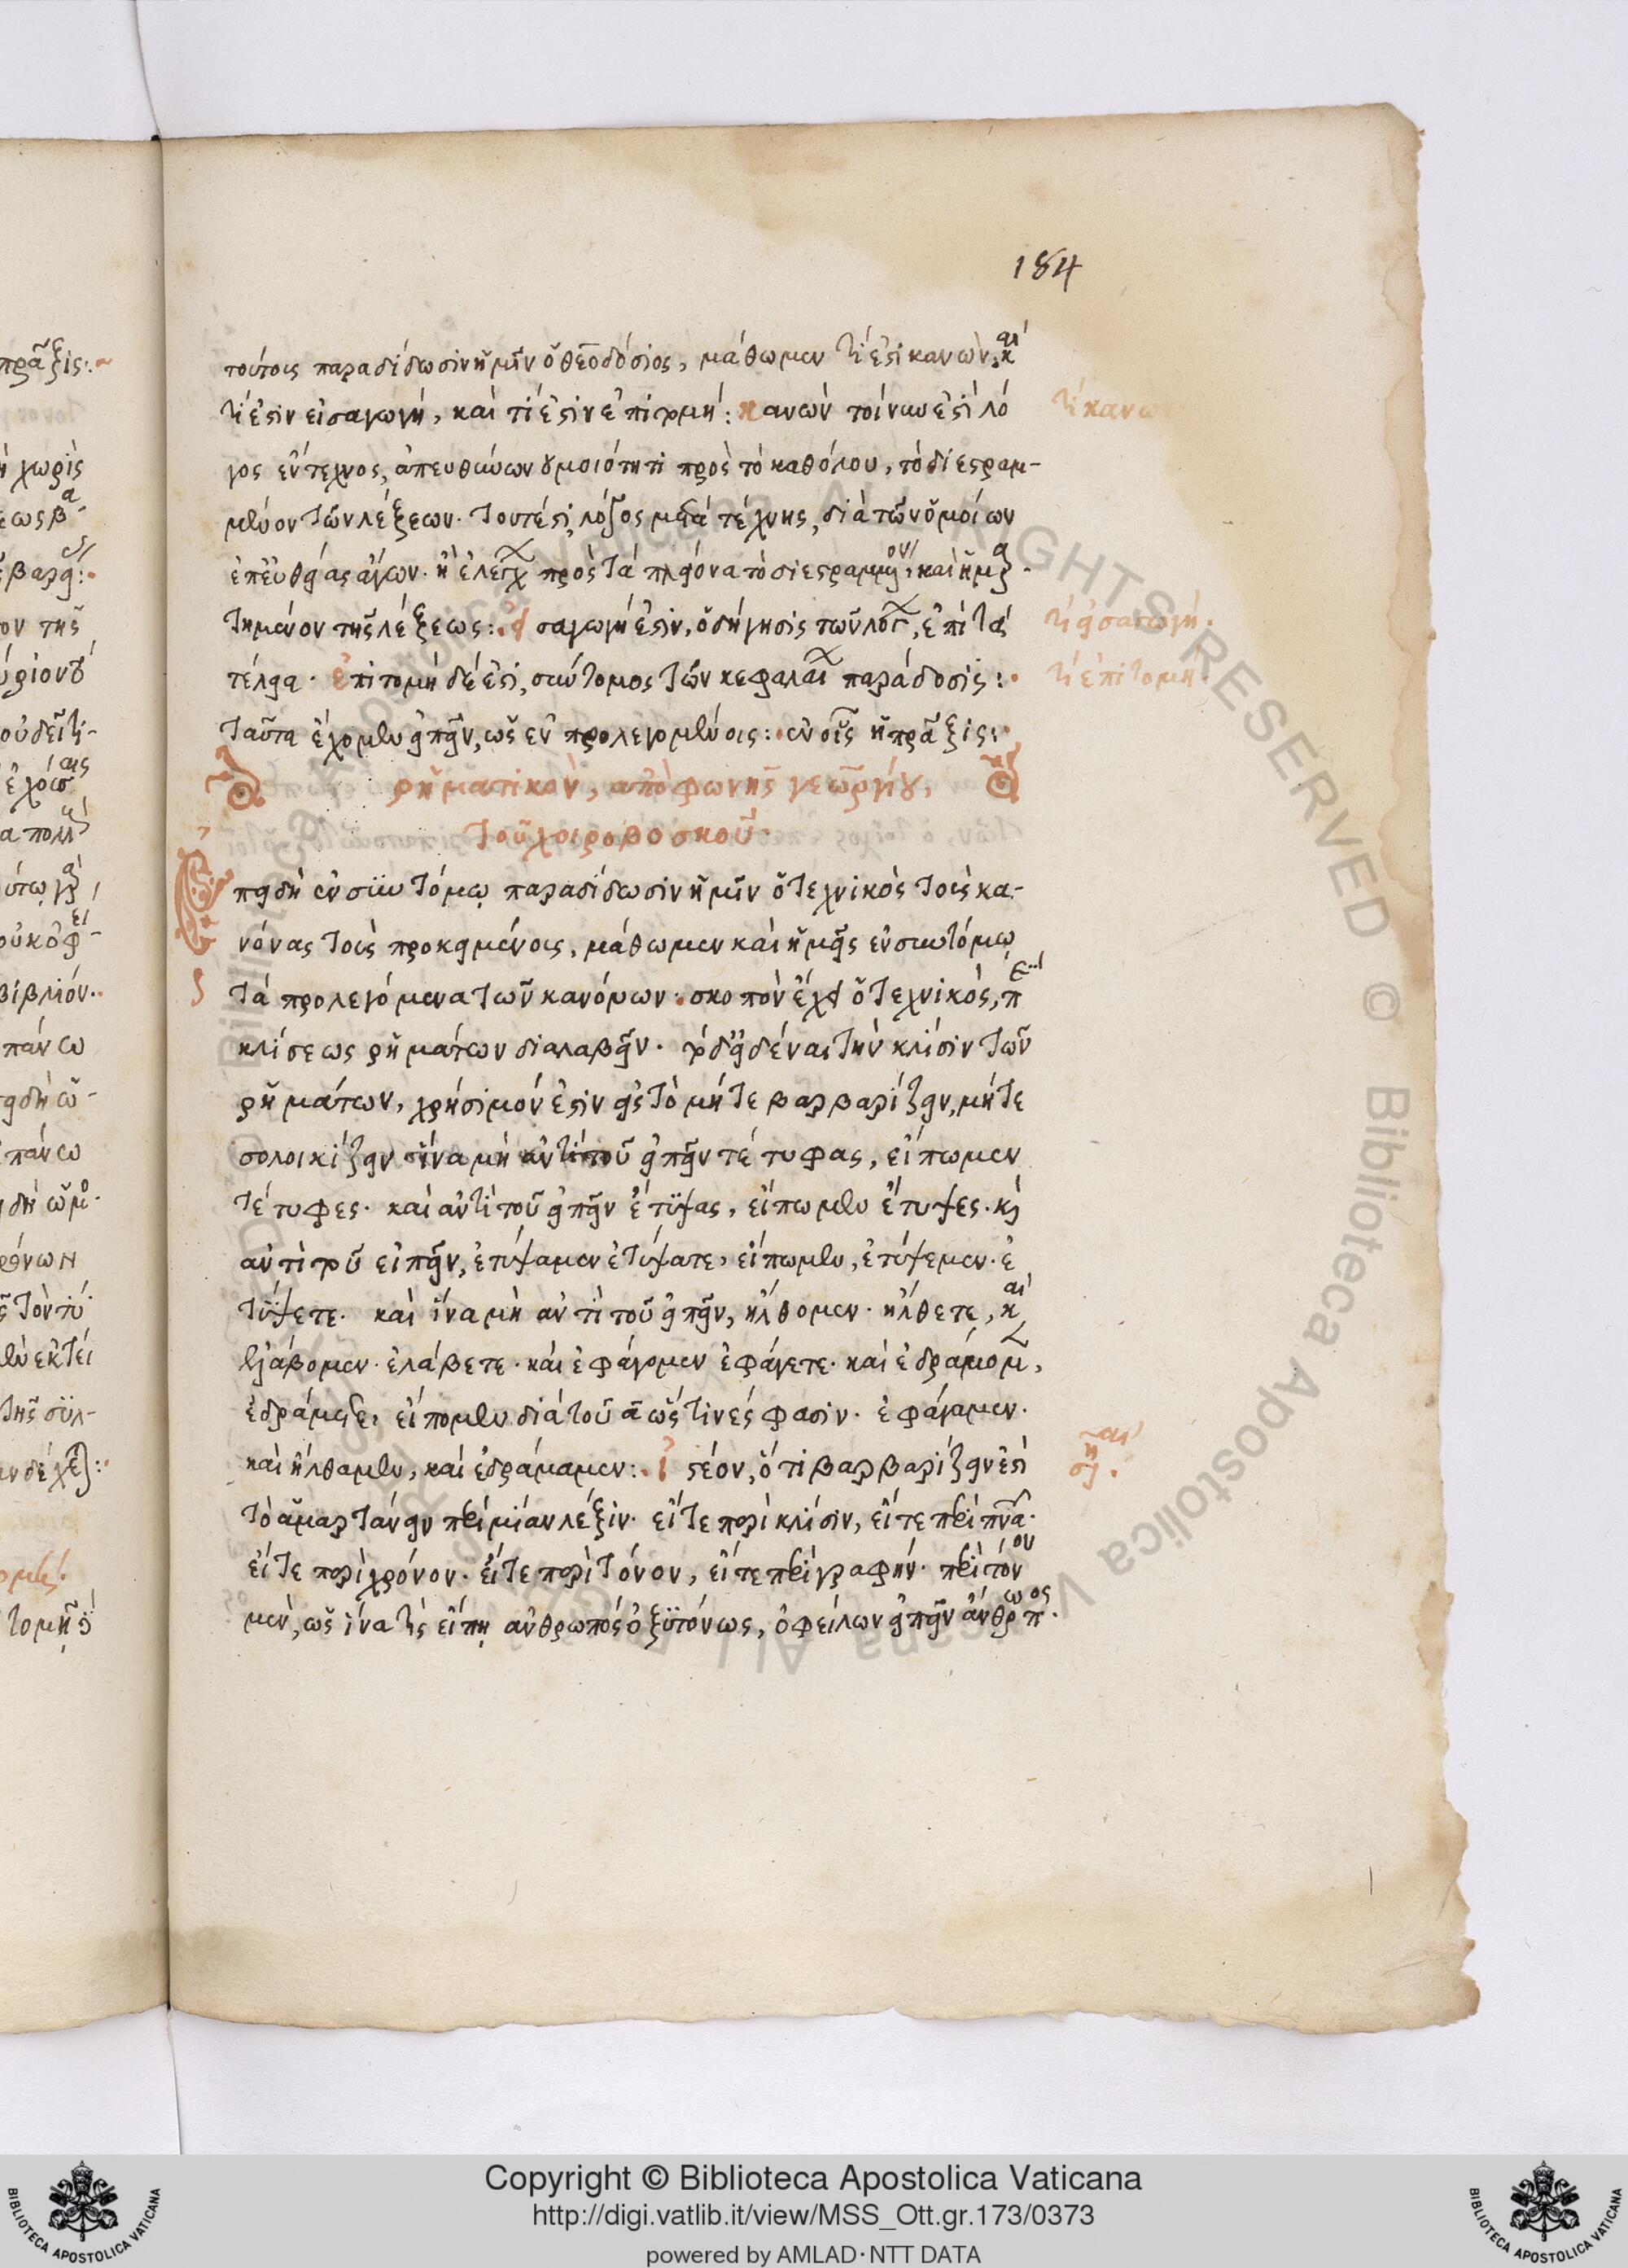 184
τούτοις παραδίδωσιν ἡμῖν ὁ θεοδόσιος, μάθωμεν τί ἐστι κανών, καὶ
τί ἐστιν εἰσαγωγή, καὶ τί ἐστιν ἐπιτομή: κανὼν τοίνυν ἐστὶ λό
τί κανὼ
γος ἔντεχνος, ἀπευθύνων ὁμοιότητι πρὸς τὸ καθόλου, τὸ διεστραμ-
μένον τῶν λέξεων. τουτέστι, λόγος μετὰ τέχνης, διὰ τῶν ὁμοίων
ἐπ' εὐθείας ἄγων. ἢ ἐλέγχων πρὸς τὰ πλείονα τὸ διεστραμμένον, καὶ ἡμαρ-
τημένον τῆς λέξεως: εἰσαγωγή ἐστιν, ὁδήγησις τῶν λόγων, ἐπὶ τὰ
τί εἰσαγωγή.
τέλεια. ἐπιτομὴ δέ ἐστι, σύντομος τῶν κεφαλαίων παράδοσις:
τί ἐπιτομή.
ταῦτα ἔχομεν εἰπεῖν, ὡς ἐν προλεγομένοις: ἐν οἷς ἡ πρᾶξις:
ῥηματικὸν, ἀπὸ φωνῆς γεωργίου,
τοῦ χοιροβοσκοῦ.
Ἐπειδὴ ἐν συντόμῳ παραδίδωσιν ἡμῖν ὁ τεχνικὸς τοὺς κα-
νόνας τοὺς προκειμένους, μάθωμεν καὶ ἡμεῖς ἐν συντόμῳ
τὰ προλεγόμενα τῶν κανόνων. σκοπὸν ἔχει ὁ τεχνικὸς, περὶ
κλίσεως ῥημάτων διαλαβεῖν. τὸ δὲ εἰδέναι τὴν κλίσιν τῶν
ῥημάτων, χρήσιμόν ἐστιν εἰς τὸ μήτε βαρβαρίζειν, μήτε
σολοικίζειν ἵνα μὴ ἀντὶ τοῦ εἰπεῖν τέτυφας, εἴπωμεν
τέτυφες. καὶ ἀντὶ τοῦ εἰπεῖν ἔτυψας, εἴπωμεν ἔτυψες. καὶ
ἀντὶ τοῦ εἰπεῖν, ἐτύψαμεν ἐτύψατε, εἴπωμεν, ἐτύψεμεν. ἐ
τύψετε. καὶ ἵνα μὴ ἀντὶ τοῦ εἰπεῖν, ἤλθομεν. ἤλθετε, καὶ
ἐλάβομεν. ἐλάβετε. καὶ ἐφάγομεν ἐφάγετε. καὶ ἐδράμομεν,
ἐδράμετε, εἴπομεν διὰ τοῦ α ὥς τινές φασιν. ἐφάγαμεν.
καὶ ἤλθαμεν, καὶ ἐδράμαμεν: ἰστέον, ὅτι βαρβαρίζειν ἐστὶ
τὸ ἁμαρτάνειν περὶ μίαν λέξιν. εἴτε περὶ κλίσιν, εἴτε περὶ πνα.
εἴτε περὶ χρόνον. εἴτε περὶ τόνον, εἴτε περὶ γραφήν. περὶ τόνον
μὲν, ὡς ἵνα τίς εἴπῃ ἀνθρωπός ὀξυτόνως, ὀφείλων εἰπεῖν ἄνθρωπος.
Copyright © Biblioteca Apostolica Vaticana
http://digi.vatlib.it/view/MSS_Ott.gr.173/0373
powered by AMLAD·NTT DATA
BIBLIOTECA APOSTOLICA VATICANA
BIBLIOTECA APOSTOLICA VATICANA